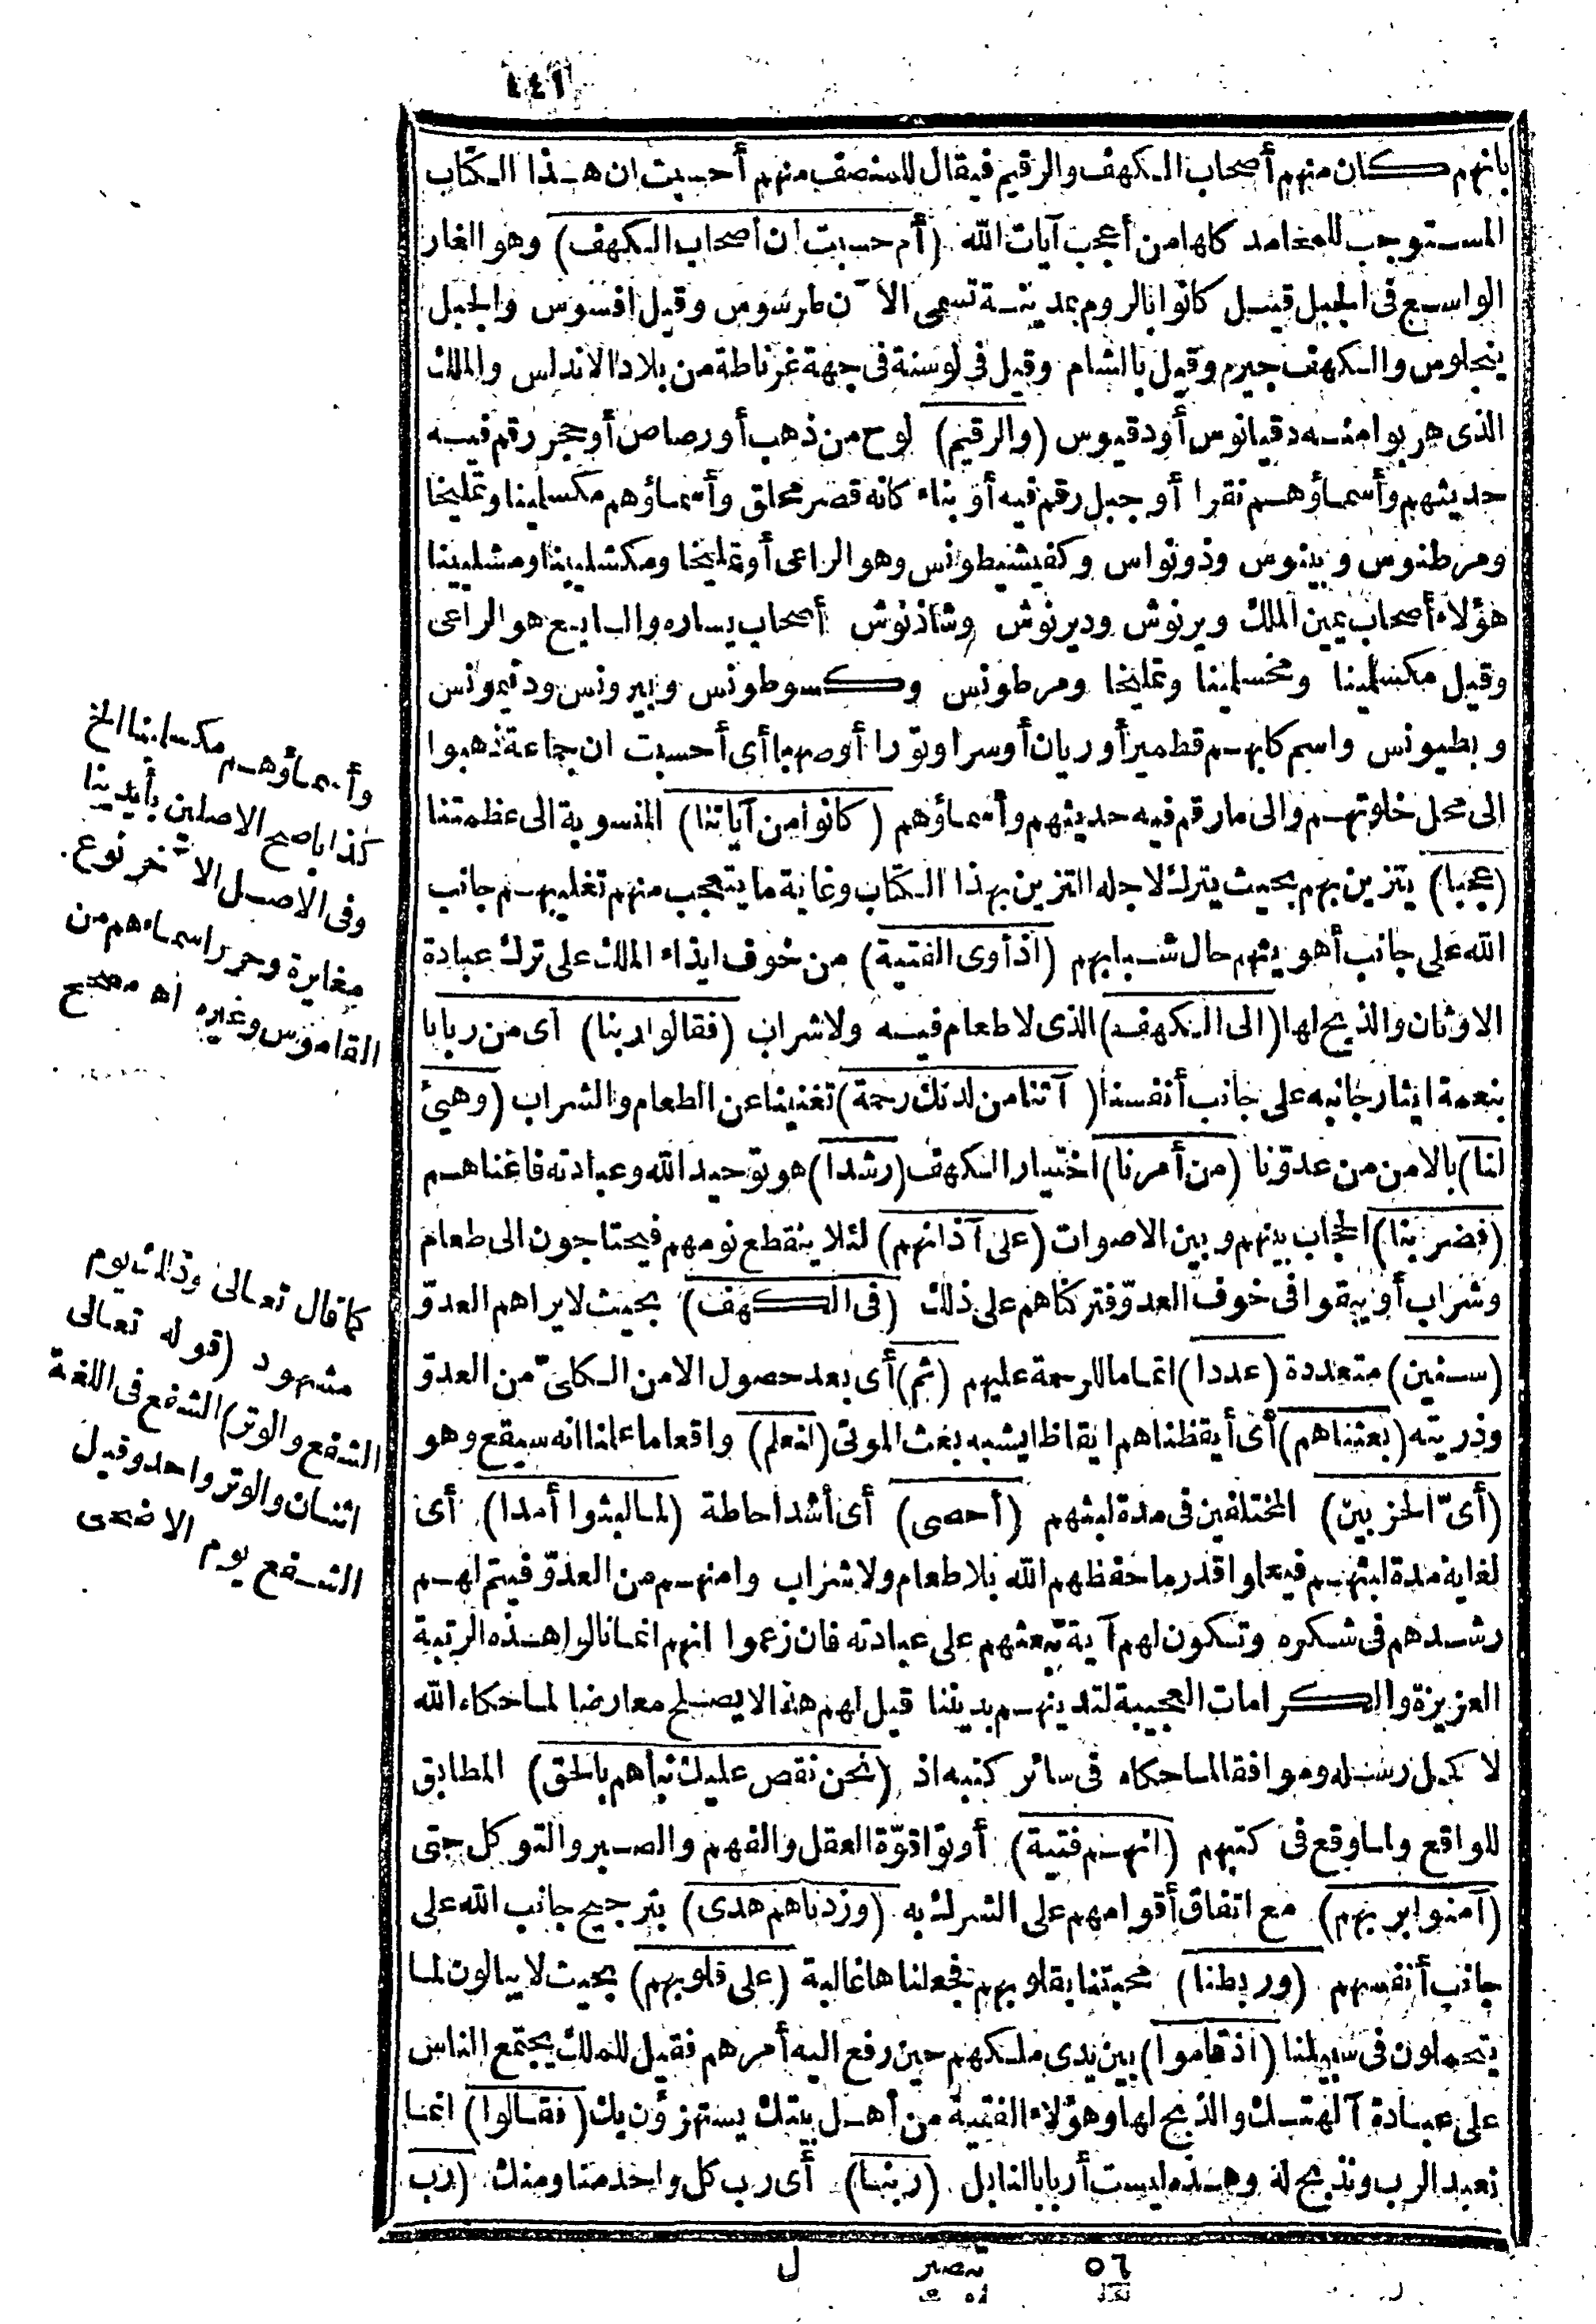 ٤٤١
بانهم كان منهم أصحاب الكهف والرقيم فيقال للمنصف منهم أحسبت ان هذا الكتاب
المستوجب للمحامد كلها من أعجب آيات الله (أم حسبت ان أصحاب الكهف) وهو الغار
الواسع فى الجبل قيل كانوا بالروم بمدينة تسمى الآن طرسوس وقيل افسوس والجبل
ينجلوس والكهف جيرم وقيل بالشام وقيل فى لوسنة فى جهة غرناطة من بلاد الاندلس والملك
الذى هربوا منه دقيانوس أو دقيوس (والرقيم) لوح من ذهب أو رصاص أو حجر رقم فيه
حديثهم وأسماؤهم نقرا أو جبل رقم فيه أو بناء كانه قصر محلق وأسماؤهم مكسلينا وتمليخا
ومرطنوس وبينوس وذونواس وكفيشيطونس وهو الراعى أو تمليخا ومكشليينا ومشليينا
هؤلاء أصحاب يمين الملك وبرنوش ودبرنوش وشاذنوش أصحاب يساره والسابع هو الراعى
وقيل مكسلمينا ومخسلمينا وتمليخا ومرطونس وكسوطونس وبيرونس ودنيمونس
وبطيونس واسم كلبهم قطمير أو ريان أو سرا وتورا أو صهبا أى أحسبت ان جماعة ذهبوا
الى محل خلوتهم والى ما رقم فيه حديثهم وأسماؤهم (كانوا من آياتنا) المنسوبة الى عظمتنا
(عجبا) يتزين بهم بحيث يترك لاجله التزين بهذا الكتاب وغاية ما يتعجب منهم تغليبهم جانب
الله على جانب أهويتهم حال شبابهم (اذ أوى الفتية) من خوف ايذاء الملك على ترك عبادة
الاوثان والذبح لها (الى الكهف) الذى لا طعام فيه ولا شراب (فقالوا ربنا) اى من ربانا
بنعمة ايثار جانبه على جانب أنفسنا (آتنا من لدنك رحمة) تغنينا عن الطعام والشراب (وهيئ
لنا) بالامن من عدوّنا (من أمرنا) اختيار الكهف (رشدا) هو توحيد الله وعبادته فاغناهم
(فضربنا) الحجاب بينهم وبين الاصوات (على آذانهم) لئلا ينقطع نومهم فيحتاجون الى طعام
وشراب أو يبقوا فى خوف العدوّ فتركناهم على ذلك (فى الكهف) بحيث لا يراهم العدوّ
(سنين) متعددة (عددا) اتماما للرحمة عليهم (ثم) أى بعد حصول الامن الكلىّ من العدوّ
وذريته (بعثناهم) أى أيقظناهم ايقاظا يشبه بعث الموتى (لنعلم) واقعا ما علمنا انه سيقع وهو
(أىّ الحزبين) المختلفين فى مدة لبثهم (أحصى) أى أشد احاطة (لما لبثوا أمدا) أى
لغاية مدة لبثهم فيعلموا قدر ما حفظهم الله بلا طعام ولا شراب وامنهم من العدوّ فيتم لهم
رشدهم فى شكره وتكون لهم آية تبعثهم على عبادته فان زعموا انهم انما نالوا هذه الرتبة
العزيزة والكرامات العجيبة لتدينهم بديننا قيل لهم هذا لا يصلح معارضا لما حكاه الله
لا كمل رسله وموافقا لما حكاه فى سائر كتبه اذ (نحن نقص عليك نبأهم بالحق) المطابق
للواقع ولما وقع فى كتبهم (انهم فتية) أوتوا قوّة العقل والفهم والصبر والتوكل حتى
(آمنوا بربهم) مع اتفاق أقوامهم على الشرك به (وزدناهم هدى) بترجيح جانب الله على
جانب أنفسهم (وربطنا) محبتنا بقلوبهم فجعلناها غالبة (على قلوبهم) بحيث لا يبالون لما
يتحملون فى سبيلنا (اذ قاموا) بين يدى ملكهم حين رفع اليه أمرهم فقيل للملك يجتمع الناس
على عبادة آلهتك والذبح لها وهؤلاء الفتية من أهل بيتك يستهزؤن بك (فقالوا) انما
نعبد الرب ونذبح له وهذه ليست أربابا لنا بل (ربنا) أى رب كل واحد منا ومنك (رب
وأسماؤهم مكسلينا الخ
كذا باصح الاصلين بأيدينا
وفى الاصل الآخر نوع
مغايرة وحرر اسماءهم من
القاموس وغيره اه مصحح
كما قال تعالى وذلك يوم
مشهود (قوله تعالى
الشفع والوتر) الشفع فى اللغة
اثنان والوتر واحد وقيل
الشفع يوم الاضحى
٥٦ تبصير ل